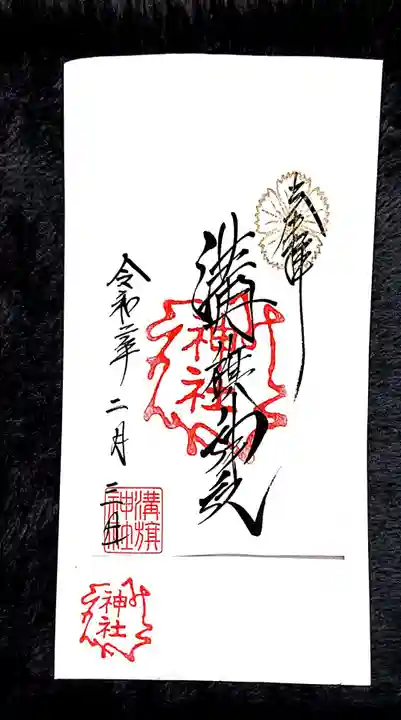 奉拝
溝旗神社
神社
令和二年二月三日
溝旗
神社
神社